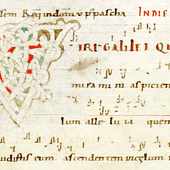 pascha INDIE
VIRI GALILEI QU
mira mi ni aspicien
lum alle lu ia quem
uidistis eum ascendentem incęlum